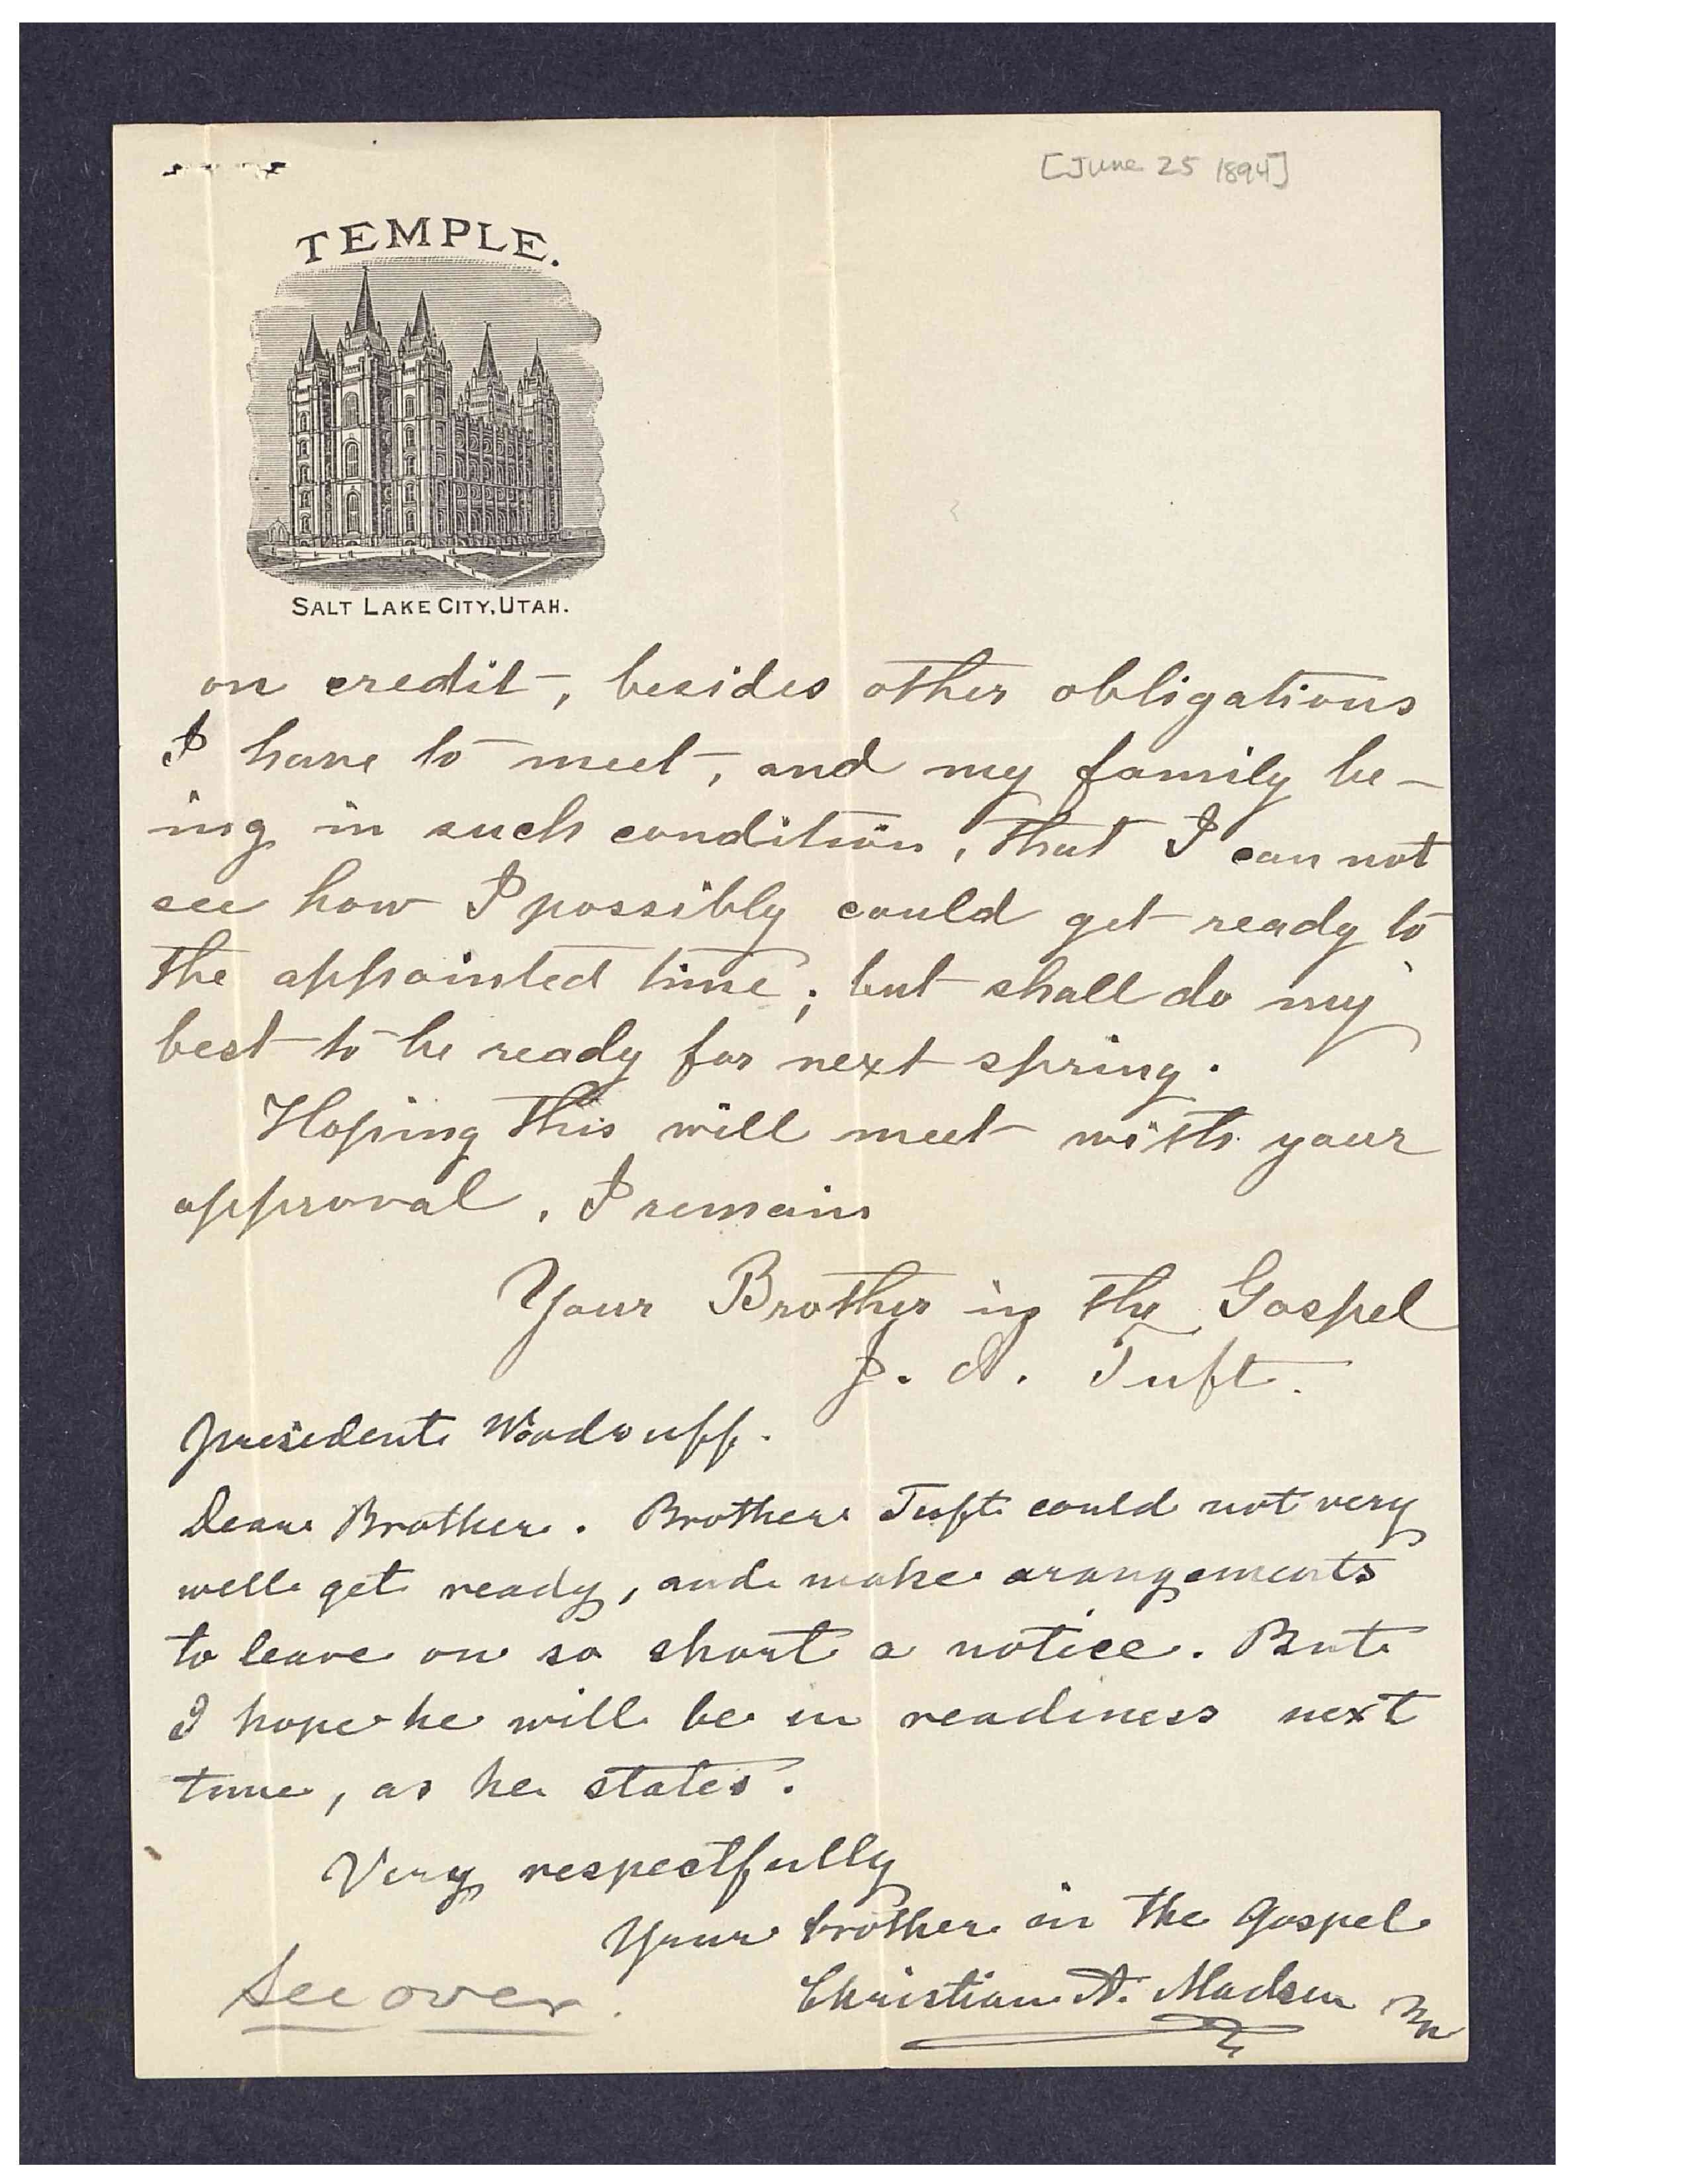 [June 25 1894]
TEMPLE.
SALT LAKE CITY, UTAH.
on credit, besides other obligations
I have to meet, and my family be-
ing in such condition, that I can not
see how I possibly could get ready to
the appointed time; but shall do my
best to be ready for next spring.
Hoping this will meet with your
approval, I remain
Your Brother in the Gospel
J. A. Tuft.
President Woodruff.
Dear Brother. Brother Tuft could not very
well get ready, and make arangements
to leave on so short a notice. But
I hope he will be in readiness next
time, as he states.
Very respectfully
Your brother in the Gospel
Christian A. Madsen
See over.